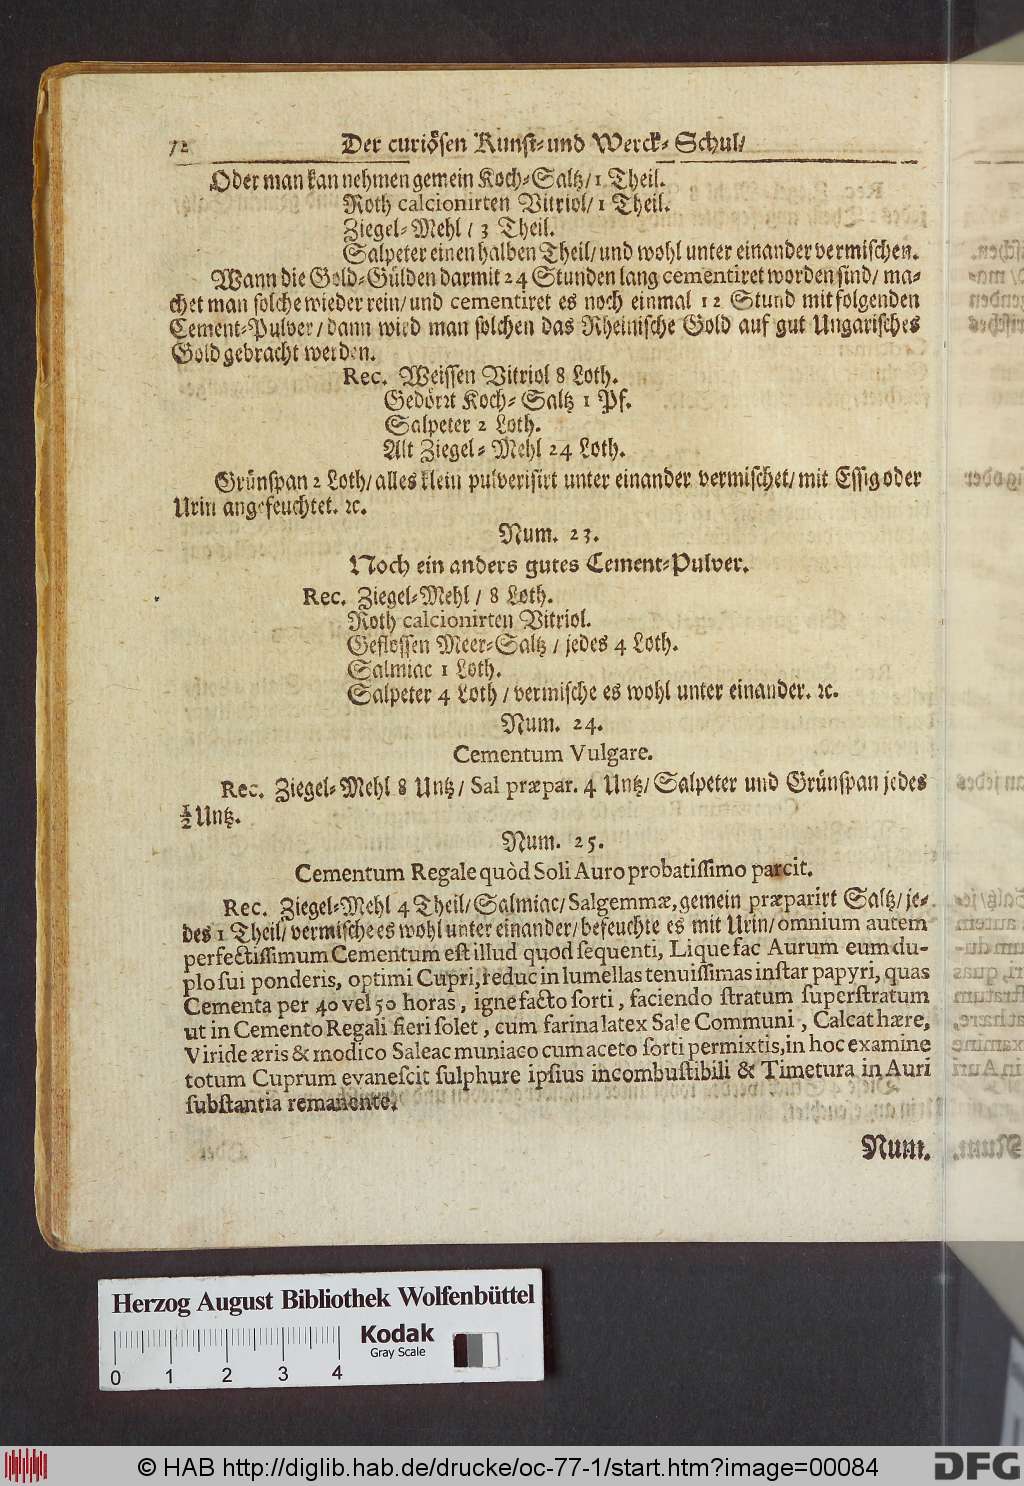 72 Der curiösen Kunst- und Werck-Schul/
Oder man kan nehmen gemein Koch-Saltz/ 1 Theil.
Roth calcionirten Vitriol/ 1 Theil.
Ziegel-Mehl / 3 Theil.
Salpeter einen halben Theil/ und wohl unter einander vermischen.
Wann die Gold-Gülden darmit 24 Stunden lang cementiret worden sind/ ma-
chet man solche wieder rein/ und cementiret es noch einmal 12 Stund mit folgenden
Cement-Pulver / dann wird man solchen das Rheinische Gold auf gut Ungarisches
Gold gebracht werden.
Rec. Weissen Vitriol 8 Loth.
Gedörrt Koch-Saltz 1 Pf.
Salpeter 2 Loth.
Alt Ziegel-Mehl 24 Loth.
Grünspan 2 Loth/ alles klein pulverisirt unter einander vermischet/ mit Essig oder
Urin angefeuchtet. ꝛc.
Num. 23.
Noch ein anders gutes Cement-Pulver.
Rec. Ziegel-Mehl / 8 Loth.
Roth calcionirten Vitriol.
Geflossen Meer-Saltz / jedes 4 Loth.
Salmiac 1 Loth.
Salpeter 4 Loth / vermische es wohl unter einander. ꝛc.
Num. 24.
Cementum Vulgare.
Rec. Ziegel-Mehl 8 Untz / Sal præpar. 4 Untz/ Salpeter und Grünspan jedes
½ Untz.
Num. 25.
Cementum Regale quòd Soli Auro probatissimo parcit.
Rec. Ziegel-Mehl 4 Theil/ Salmiac/ Salgemmæ, gemein præparirt Saltz/ je-
des 1 Theil/ vermische es wohl unter einander/ befeuchte es mit Urin/ omnium autem
perfectissimum Cementum est illud quod sequenti, Lique fac Aurum eum du-
plo sui ponderis, optimi Cupri, reduc in lumellas tenuissimas instar papyri, quas
Cementa per 40 vel 50 horas, igne facto forti, faciendo stratum superstratum
ut in Cemento Regali fieri solet, cum farina latex Sale Communi, Calcathære,
Viride æris & modico Saleac muniaco cum aceto forti permixtis, in hoc examine
totum Cuprum evanescit sulphure ipsius incombustibili & Timetura in Auri
substantia remanente.
Num.
Herzog August Bibliothek Wolfenbüttel
Kodak
Gray Scale
0 1 2 3 4
© HAB http://diglib.hab.de/drucke/oc-77-1/start.htm?image=00084
DFG